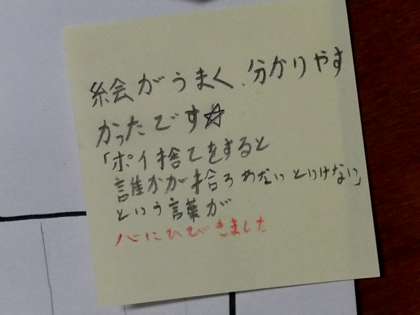 絵がうまく、分かりやす
かったです☆
「ポイ捨てをすると
誰かが拾ろわないといけない」
という言葉が
心にひびきました